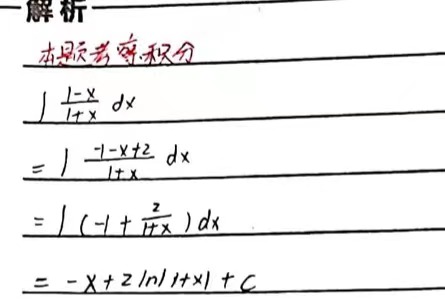 解析
本题考察积分
∫ \frac{1-x}{1+x} dx
= ∫ \frac{-1-x+2}{1+x} dx
= ∫ (-1 + \frac{2}{1+x}) dx
= -x + 2 ln|1+x| + C